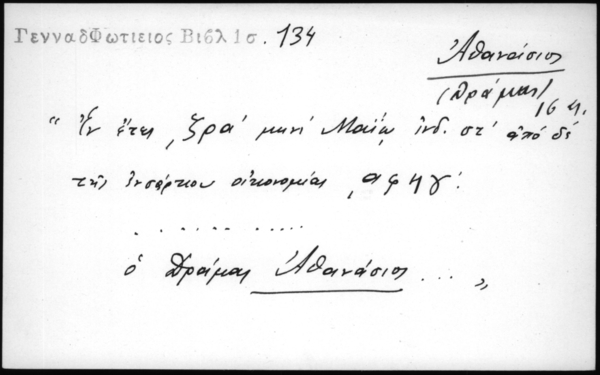 ΓενναδΦωτιειος Βιβλ 1σ. 134
Ἀθανάσιος
(Δράμας) 16 αι.
“ Ἐν ἔτει ͵ζρα΄ μηνί Μαΐῳ ἰνδ. στ΄ ἀπό δέ
τῆς ἐνσάρκου οἰκονομίας ͵αφ4γ΄.
. . . . . . . . . . . .
ὁ Δράμας Ἀθανάσιος ... „